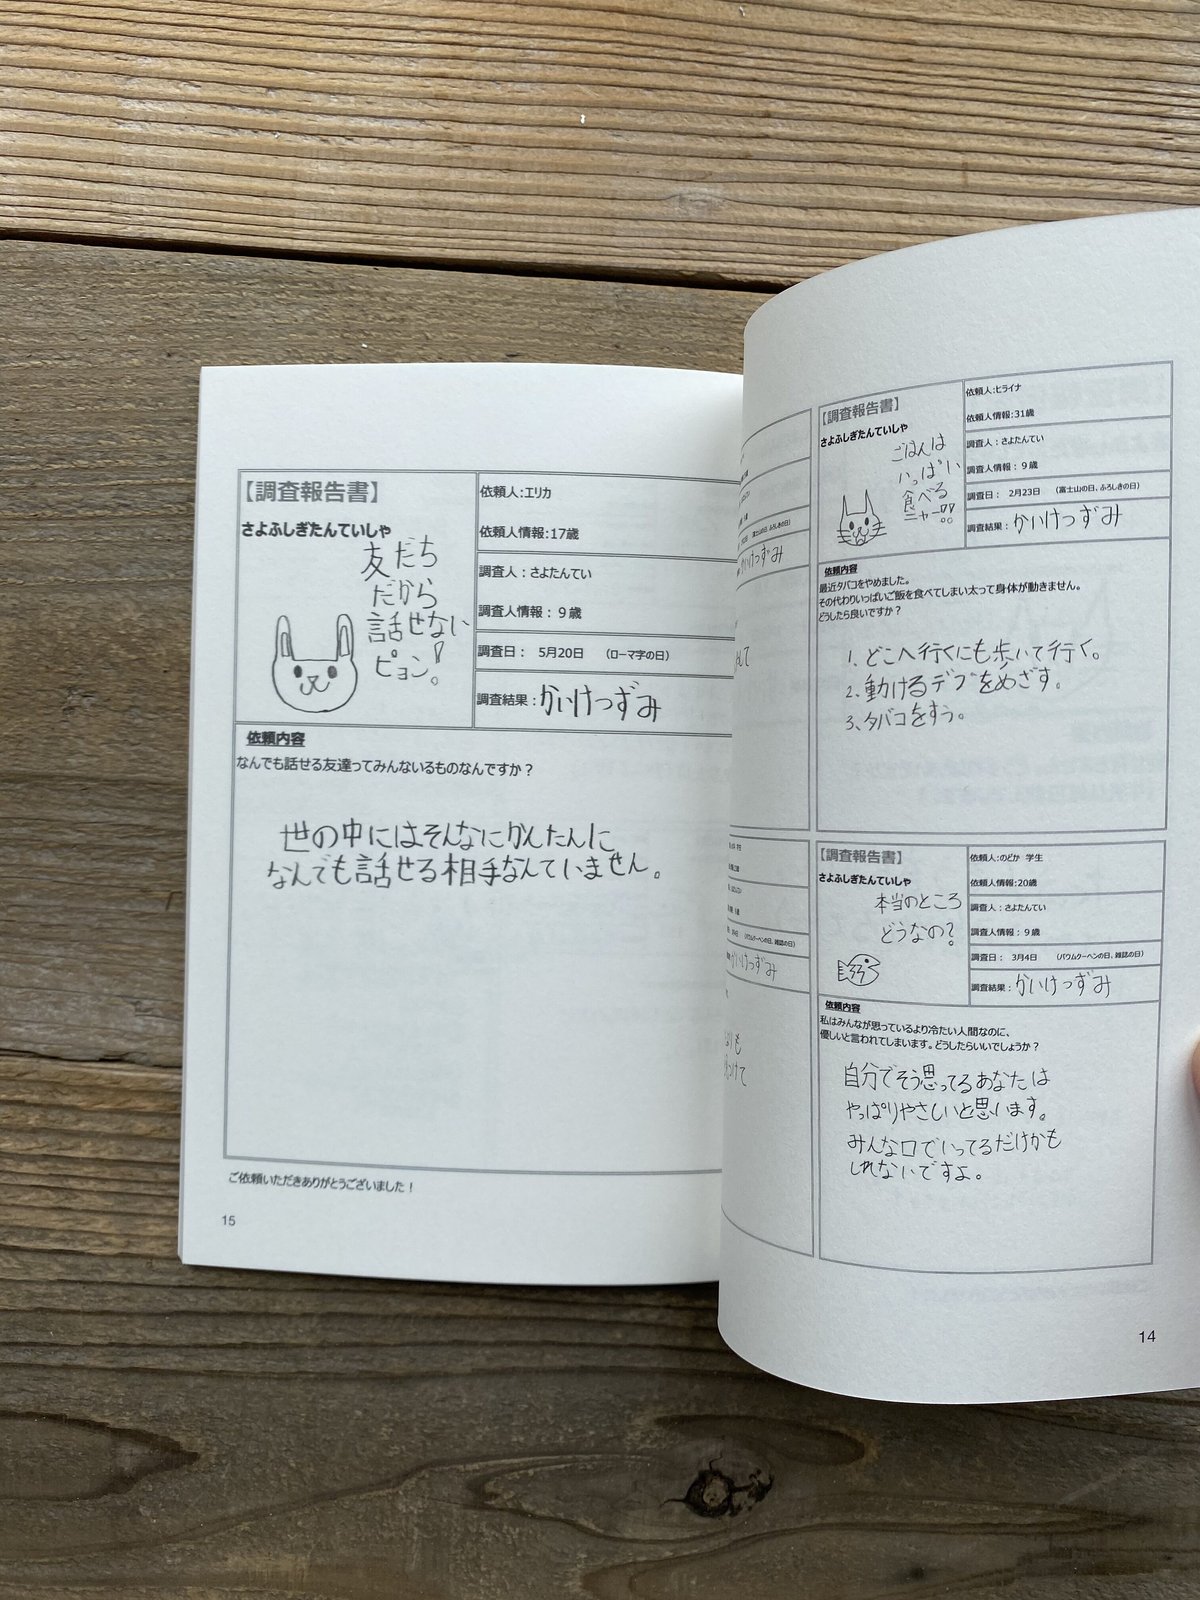 【調査報告書】
さよふしぎたんていしゃ
友だち
だから
話せない
ピョン!。
依頼人:エリカ
依頼人情報:17歳
調査人：さよたんてい
調査人情報：９歳
調査日： 5月20日 （ローマ字の日）
調査結果：かいけつずみ
依頼内容
なんでも話せる友達ってみんないるものなんですか？
世の中にはそんなにかんたんに
なんでも話せる相手なんていません。
ご依頼いただきありがとうございました！
15
かいけつずみ
かいけつずみ
【調査報告書】
さよふしぎたんていしゃ
ごはんは
いっぱい
食べる
ニャー!!
依頼人:ヒライナ
依頼人情報:31歳
調査人：さよたんてい
調査人情報：９歳
調査日： 2月23日 （富士山の日、ふろしきの日）
調査結果：かいけつずみ
依頼内容
最近タバコをやめました。
その代わりいっぱいご飯を食べてしまい太って身体が動きません。
どうしたら良いですか？
1. どこへ行くにも歩いて行く。
2. 動けるデブをめざす。
3. タバコをすう。
【調査報告書】
さよふしぎたんていしゃ
本当のところ
どうなの？
依頼人:のどか 学生
依頼人情報:20歳
調査人：さよたんてい
調査人情報：９歳
調査日： 3月4日 （バウムクーヘンの日、雑誌の日）
調査結果：かいけつずみ
依頼内容
私はみんなが思っているより冷たい人間なのに、
優しいと言われてしまいます。どうしたらいいでしょうか？
自分でそう思ってるあなたは
やっぱりやさしいと思います。
みんな口でいってるだけかも
しれないですよ。
14